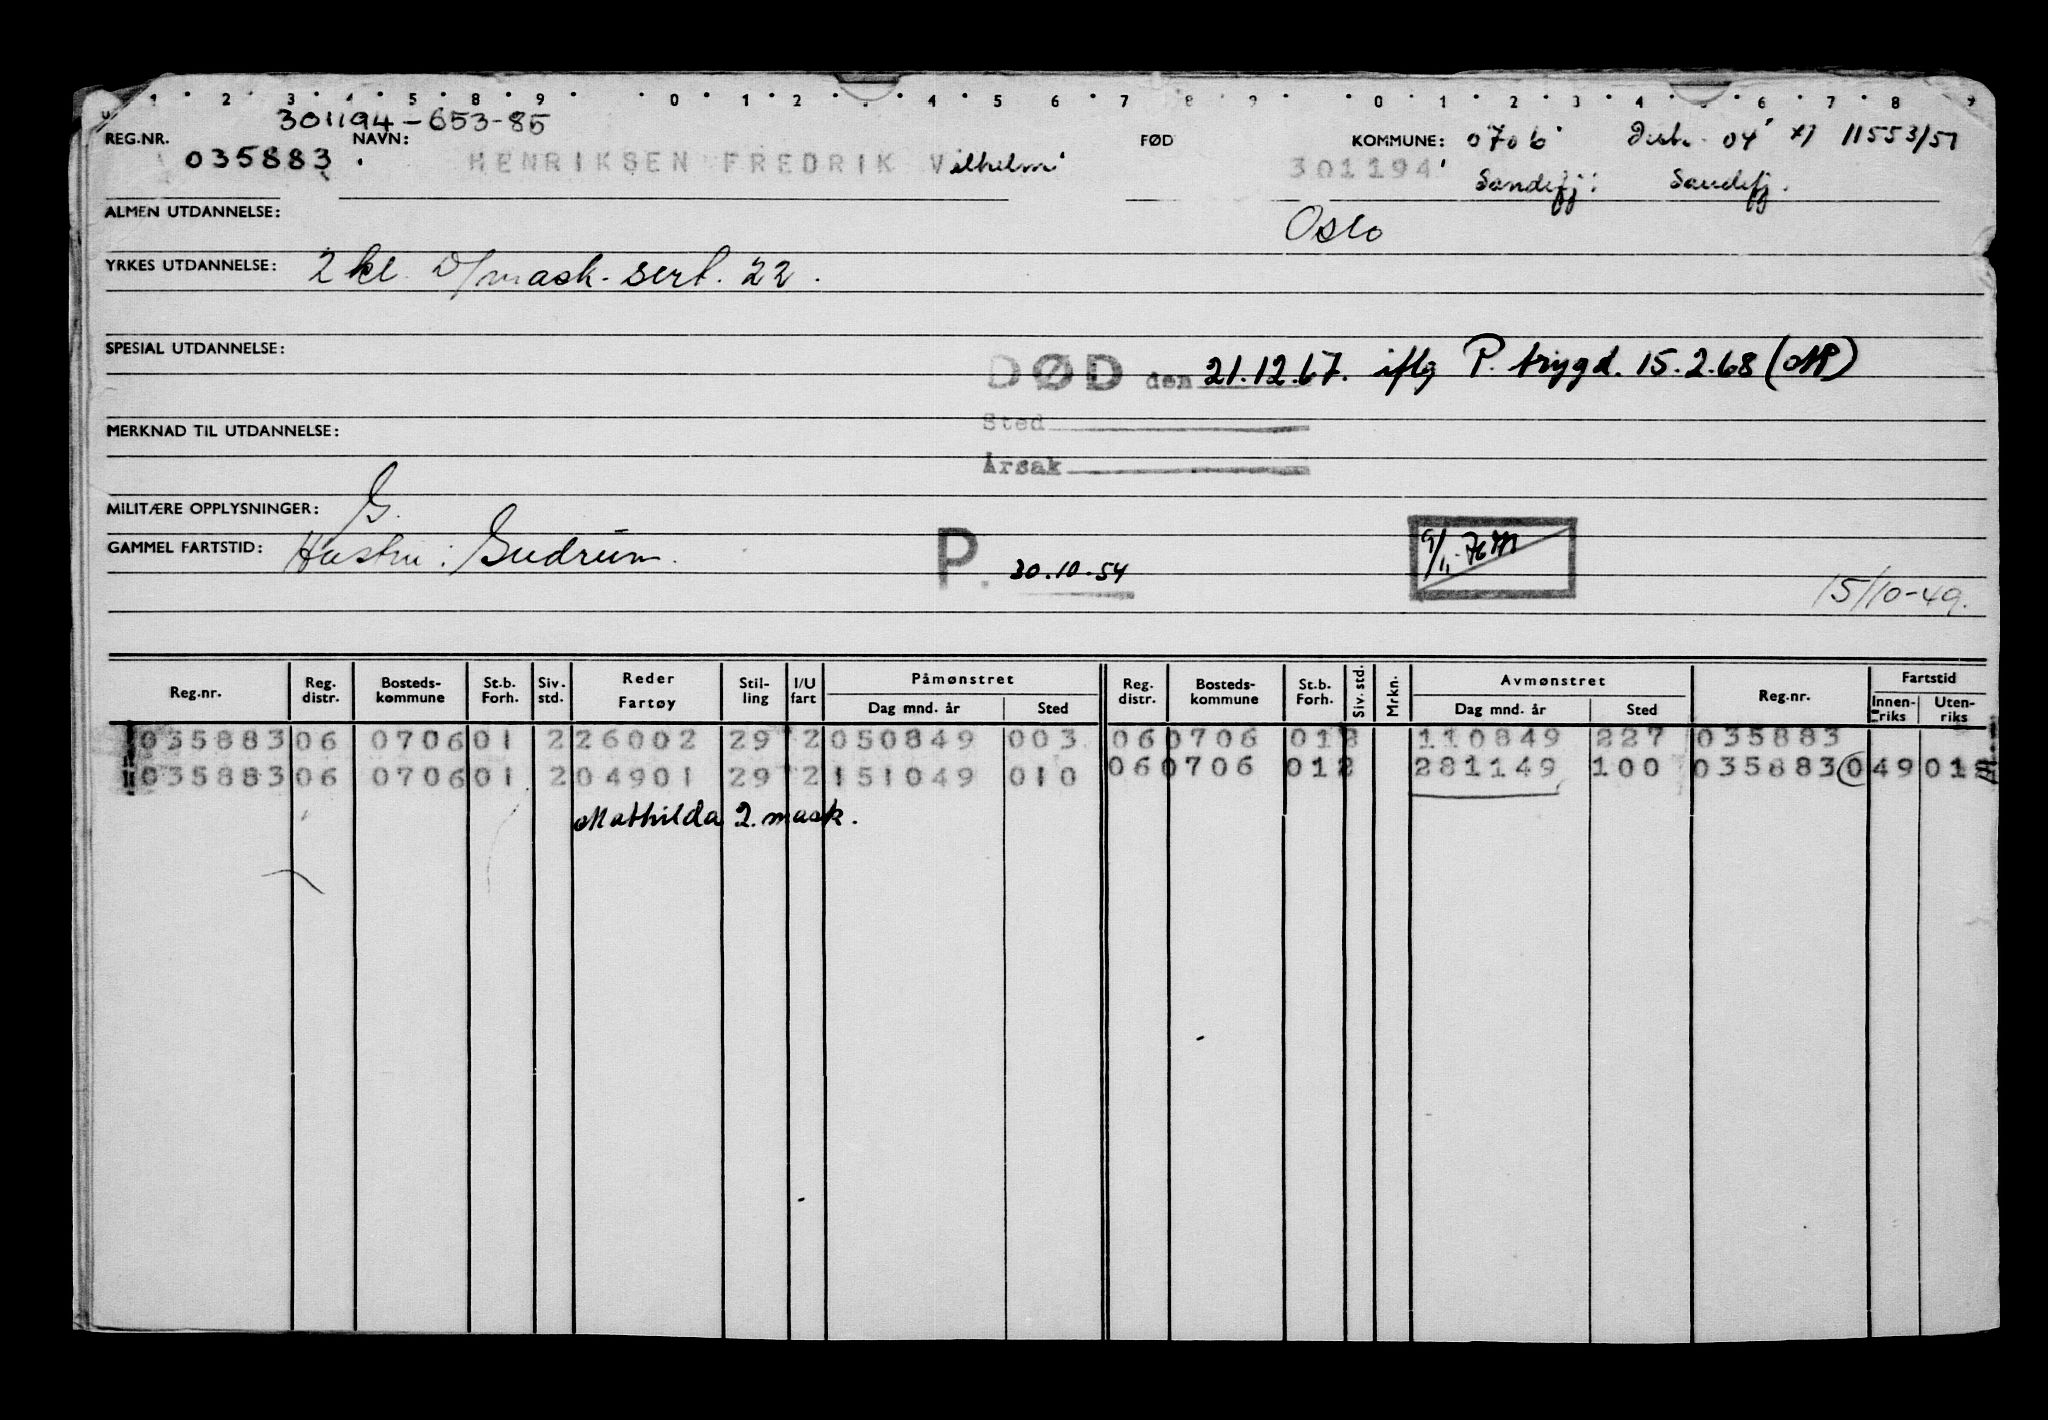 1 2 3 4 5 8 9 0 1 2 4 5 6 7 8 9 0 1 2 3 4 6 7 8 9
301194-653-85
REG.NR. NAVN: FØD KOMMUNE: 0706 Distr. 04 *) 11553/51
035883. HENRIKSEN FREDRIK Vilhelm 301194 Sandefj: Sandefj.
ALMEN UTDANNELSE: Oslo
YRKES UTDANNELSE: 2 kl. D/mask. sert. 22.
SPESIAL UTDANNELSE:
DØD den 21.12.67. iflg P. trygd. 15.2.68 (MP)
MERKNAD TIL UTDANNELSE: Sted
Årsak
MILITÆRE OPPLYSNINGER: G.
GAMMEL FARTSTID: Hustru: Gudrun. P. 30.10-54 9/1
15/10-49.
Reg.nr. Reg. distr. Bosteds-kommune St.b. Forh. Siv. std. Reder Fartøy Stil-ling I/U fart Påmønstret Dag mnd. år Sted Reg. distr. Bosteds-kommune St.b. Forh. Siv. std. Mrkn. Avmønstret Dag mnd. år Sted Reg.nr. Fartstid Innen-riks Uten-riks
035883 06 0706 01 2 26002 29 2 050849 003 06 0706 01 2 110849 227 035883
035883 06 0706 01 2 04901 29 2 151049 010 06 0706 01 2 281149 100 035883 0 49 01
Mathilda 2. mask.